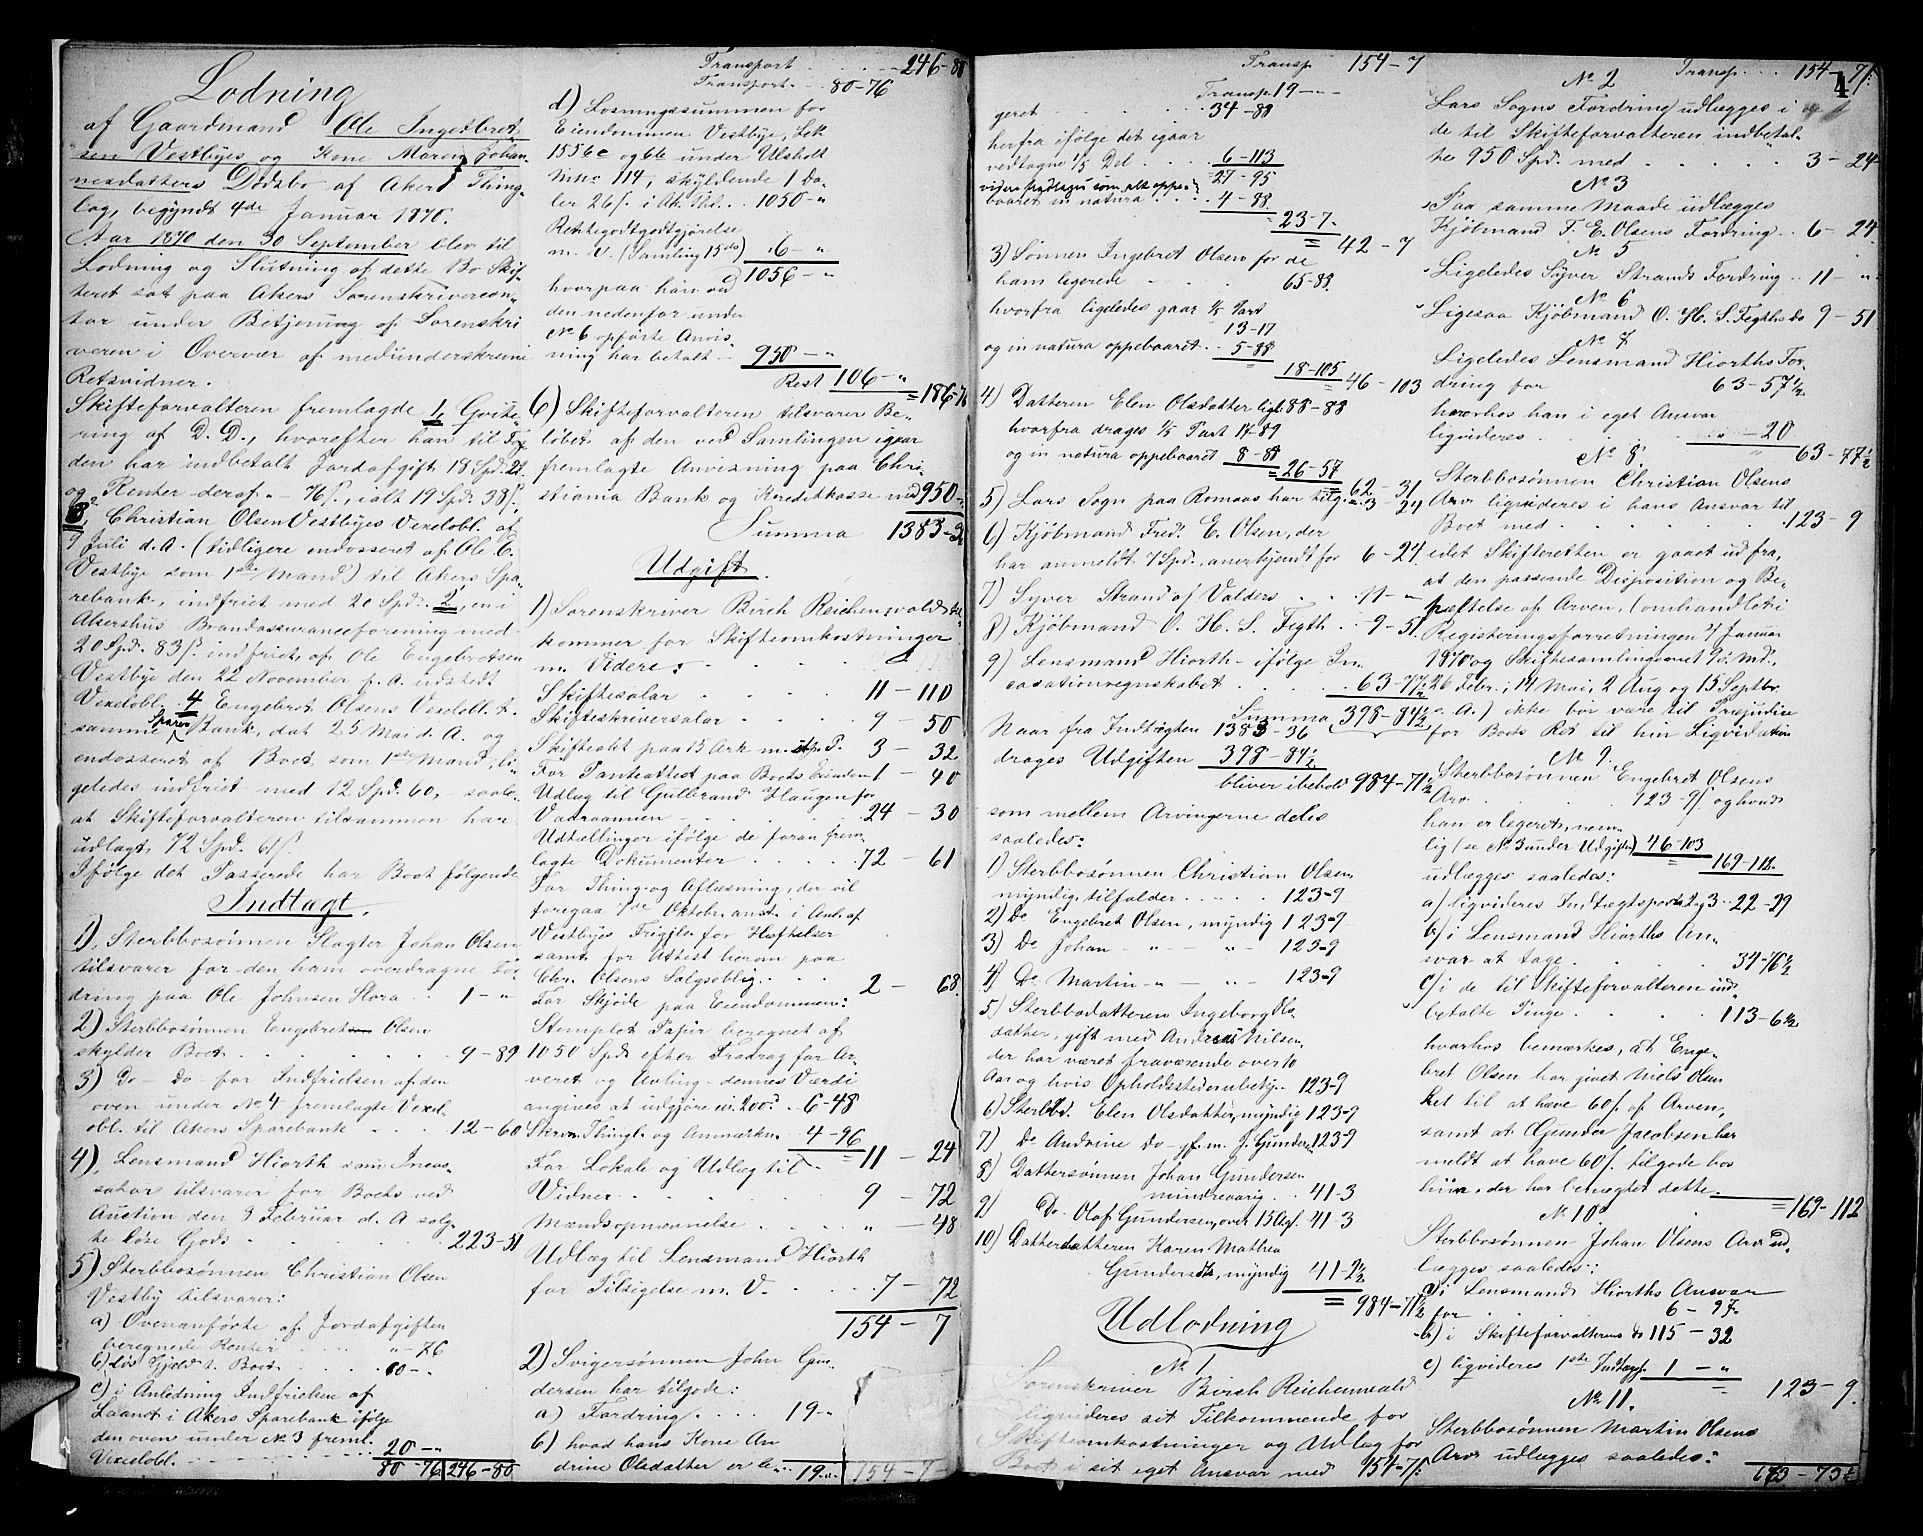 Lodning
af Gaardmand Ole Ingetbret-
sen Vestbyes og Kone Maren Johan-
nesdatters Dødsbo af Akers Thing-
lag, begyndt 4de Januar 1870.
Aar 1870 den 30 September blev til
Lodning og Slutning af dette Bo Skif-
teret sat paa Akers Sorenskrivercon-
tor under Betjening af Sorenskri
veren i Overvær af medunderskrevne
Retsvidner.
Skifteforvalteren fremlagde 1, Qvitte-
ring af D. D., hvorefter han til
den har indbetalt Jordafgift 18 Spd. 21
og Renter deraf " - 76 ß, ialt 19 Spd. 38 ß.
Christian Olsen Vestbyes Vexelobl. af
9 Juli d. A. (tidligere endosseret af Ole E.
Vestbye som 1ste Mand) til Akers Spa-
rebank, indfriet med 20 Spd. 2, en i
Akershus Brandassuranceforening med
20 Spd. 83 ß indfriet, af Ole Engebretsen
Vestbye den 22 November f. A. udstedt
Vexelobl. 4 Engebret Olsens Vexelobl. t.
samme Spare Bank, dat 25 Mai d. A. og
endosseret af Boet som 1ste Mand, li-
geledes indfriet med 12 Spd. 60, - saale-
at Skifteforvalteren tilsammen har
udlagt, 72 Spd. 61 ß.
Ifølge det Passerede har Boet følgende
Indtægt.
1) Sterbbosønnen Slagter Johan Olsen
tilsvarer for den ham overdragne For
dring paa Ole Johnsen Flora . . 1 - "
2) Sterbbosønnen Engebret Olsen
skylder Boet . . . . 9 - 89
3) Do - do - for Indfrielsen af den
oven under No 4 fremlagte Vexel-
obl. til Akers Sparebank . . . 12 - 60
4) Lensmand Hiorth som Incas-
sator tilsvarer for Boets ved
Auction den 8 Februar d. A solg-
te løse Gods . . . . 223-51
5) Sterbbosønnen Christian Olsen
Vestby tilsvarer:
a) Ovenanførte af Jordafgiften
beregnede Renter . . . " - 76
b) sin Gjeld t. Boet . . . 60 - "
c) i Anledning Indfrielsen af
Laanet i Akers Sparebank ifølge
den oven under No 3 freml.
Vexelobl. . . . 20 - "
80 - 76 246 - 80
Transport . . . . 246 - 80
Transport . . 80 - 76
d) Løsningssummen for
Eiendommen Vestbye, Løk
155 6c og 6b under Ulsholt
Mno 114, skyldende 1 Da-
ler 26 ß. i Ak. Thl. . . 1050 - "
Rettegodtgodtgjørelse
m. V. (Samling 15 ds) . 6 - "
1056 - "
hvorpaa han ved
den nedenfor under
No 6 opførte Anvis-
ning har betalt - 950 - "
Rest 106 - " = 186-76
6) Skifteforvalteren tilsvarer Be-
løbet af den ved Samlingen igaar
fremlagte Anvisning paa Chri-
stiania Bank og Kreditkasse med 950 -
Summa 1383-36
Udgift.
1) Sorenskriver Birch Reichenwald til-
kommer for Skifteomkostninger
m. Videre:
Skiftesalar 11 - 110
Skifteskriversalar 9 50
Skifteakt paa 15 Ark m. stp. P. 3 - 32
For Panteattest paa Boets Eiendom 1 - 40
Udlæg til Gulbrand Haugen for
Vadraamen 24 - 30
Udtællinger ifølge de foran frem-
lagte Dokumenter . . . 72 - 61
For Thing- og Aflæsning, der vil
foregaa 1de Oktobr. anst. i Anl. af
Vestbyes Frigjlse for Heftelser
samt for Attest herom paa
Chr. Olsens Salgsoblig. . . 2 - 68
For Skjøde paa Eiendommen:
Stemplet Papir beregnet af
1050 Spd. efter Fradrag for Ar-
veret og Avling - dennes Værdi
angives at udgjøre ca. 200 d . 6 - 48
Skrivr. Thingl. og Anmærkn. 4 - 96 = 11 - 24
For Lokale og Udlæg til
Vidner . . . 9 - 72
Mændsopnævnelse . . . " - 48
Udlæg til Lensmand Hiorth
for Tilsigelse m. V. . . 7 - 72
154 - 7
2) Svigersønnen John Gun-
dersen har tilgode:
a) Fordring . . . 19 - "
b) hvad hans Kone An-
drine Olsdatter er le- 19 - " 154 - 7
Transp 154 - 7
Transp. 19 - "
geret . . . 34 - 88
herfra ifølge det igaar
vedtagne 1/5 Del . . 6 - 113
27 - 95
videre fradrages som alt oppe-
baaret in natura . . . 4 - 88
= 23 - 7
= 42 - 7
3) Sønnen Ingebret Olsen for de
ham legerede . . . 65 - 88
hvorfra ligeledes gaar 1/5 Part
13 - 17
og in natura oppebaaret . . 5 - 88
18 - 105
= 46 - 103
4) Datteren Elen Olsdatter lig. 88 - 88
hvorfra drages 1/5 Part 17 - 89
og in natura oppebaaret 8 - 88
= 26 - 57
= 62 - 31
5) Lars Sogn paa Romsaas har tilg. 3 - 24
6) Kjøbmand Fred. E. Olsen, der
har anmeldt 7 Spd., anerkjendt for 6 - 24
7) Syver Strand af Valders . . 11 - "
8) Kjøbmand O. H. S. Fegth . . 9 - 51
9) Lensmand Hiorth - ifølge In-
casationregnskabet . . . 63 - 77 1/2
Summa 398 - 84 1/2
Naar fra Indtægten 1383 - 36
drages Udgiften 398 - 84 1/2
bliver i behold 984 - 71 1/2
som mellem Arvingerne deles
saaledes:
1) Sterbbosønnen Christian Olsen
myndig, tilfalder . . . . 123 - 9
2) Do Engebret Olsen, myndig 123 - 9
3) Do Johan - " - " - 123 - 9
4) Do Martin - " - " - 123 - 9
5) Sterbbodatteren Ingeborg Ols-
datter, gift med Andreas Nilsen,
der har været fraværende over 10
Aar og hvis Opholdssted er ubekj. 123 - 9
6) Sterbbd. Elen Olsdatter, myndig 123 - 9
7) Do Andrine do - gf. m. J. Gunders. 123 - 9
8) Dattersønnen Johan Gundersen
mindreaarig . . 41 - 3
9) Do. Olaf Gundersen, over 15 Aar . 41 - 3
10) Datterdatteren Karen Mathea
Gundersdtr, myndig 41 - 2 1/2
= 984 - 71 1/2
Udlodning
No 1
Sorenskriver Birch Reichenwald
ligvideres sit Tilkommende for
Skifteomkostninger og Udlæg for
Boet i sit eget Ansvar med 154 - 7 ß:
4
No 2 Transp. . . . 154 - 7 ß.
Lars Sogns Fordring udlægges i
de til Skifteforvalteren indbetal-
te 950 Spd. med . . . . 3 - 24
No 3
Paa samme Maade udlægges
Kjøbmand F. E. Olsens Fordring . . 6 - 24
No 5
Ligeledes Syver Strands Fordring . . 11 - "
No 6
Ligesaa Kjøbmand O. H. S. Fegths do 9 - 51
No 7
Ligeledes Lensmand Hiorths For-
dring for 63 - 57 1/2
hvorhos han i eget Ansvar
ligvideres . . . . " - 20
63 - 77 1/2
No 8
Sterbbosønnen Christian Olsens
Arv ligvideres i hans Ansvar til
Boet med . . . . 123 - 9
idet Skifteretten er gaaet ud fra,
at den passende Disposition og Be-
hæftelse af Arven, (omhandlet i
Registreringsforretningen 4 Januar
1870 og Skiftesamlingerne s. Md.,
26 Febr.; 14 Mai, 2 Aug og 15 Septbr.
d. A.) ikke bør være til Præjudice
for Boets Ret til hin Liqvidation
No 9.
Sterbbosønnen Engebret Olsens
Arv . . . . 123 - 9 ß. og hvad
han er legeret, nem-
lig (se No 3 under Udgift) 46 - 103
169 - 112
udlægges saaledes:
a) ligvideres Indtægtspost 2 og 3 - 22 - 29
b) i Lensmand Hiorths An-
svar at tage . . . . 34 - 76 1/2
c) i de til Skifteforvalteren ind-
betalte Penge . . . . 113 - 6 1/2
hvorhos bemærkes, at Enge-
bret Olsen har givet Niels Olsen
Ret til at hæve 60 ß. af Arven,
samt at Gunder Jacobsen har
meldt at have 60 ß. tilgode hos
ham, der har benægtet dette. = 169 - 112
No 10
Sterbbosønnen Johan Olsens Arv ud-
lægges saaledes:
a) i Lensmand Hiorths Ansvar
for . . . . 6 - 97
b) i Skifteforvalterens do 115 - 32
c) ligvideres 1ste Indtægt 1 - "
= 123 - 9
No 11.
Sterbbosønnen Martin Olsens
Arv udlægges saaledes:
673 - 73 1/2